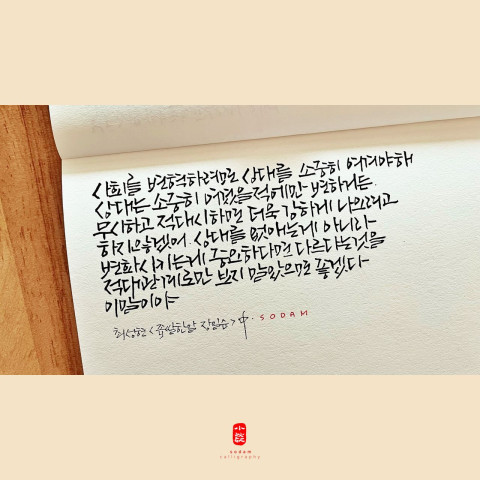 사회를 변혁하려면 상대를 소중히 여겨야해
상대는 소중히 여겼을적에만 변하거든.
무시하고 적대시하면 더욱 강하게 나오려고
하지 않겠어. 상대를 없애는게 아니라
변화시키는게 중요하다면 다르다는것을
적대관계로만 보지 말았으면 좋겠다
이말이야
최성현 <좁쌀한알 장일순> 中. SODAM
小談
sodam
calligraphy